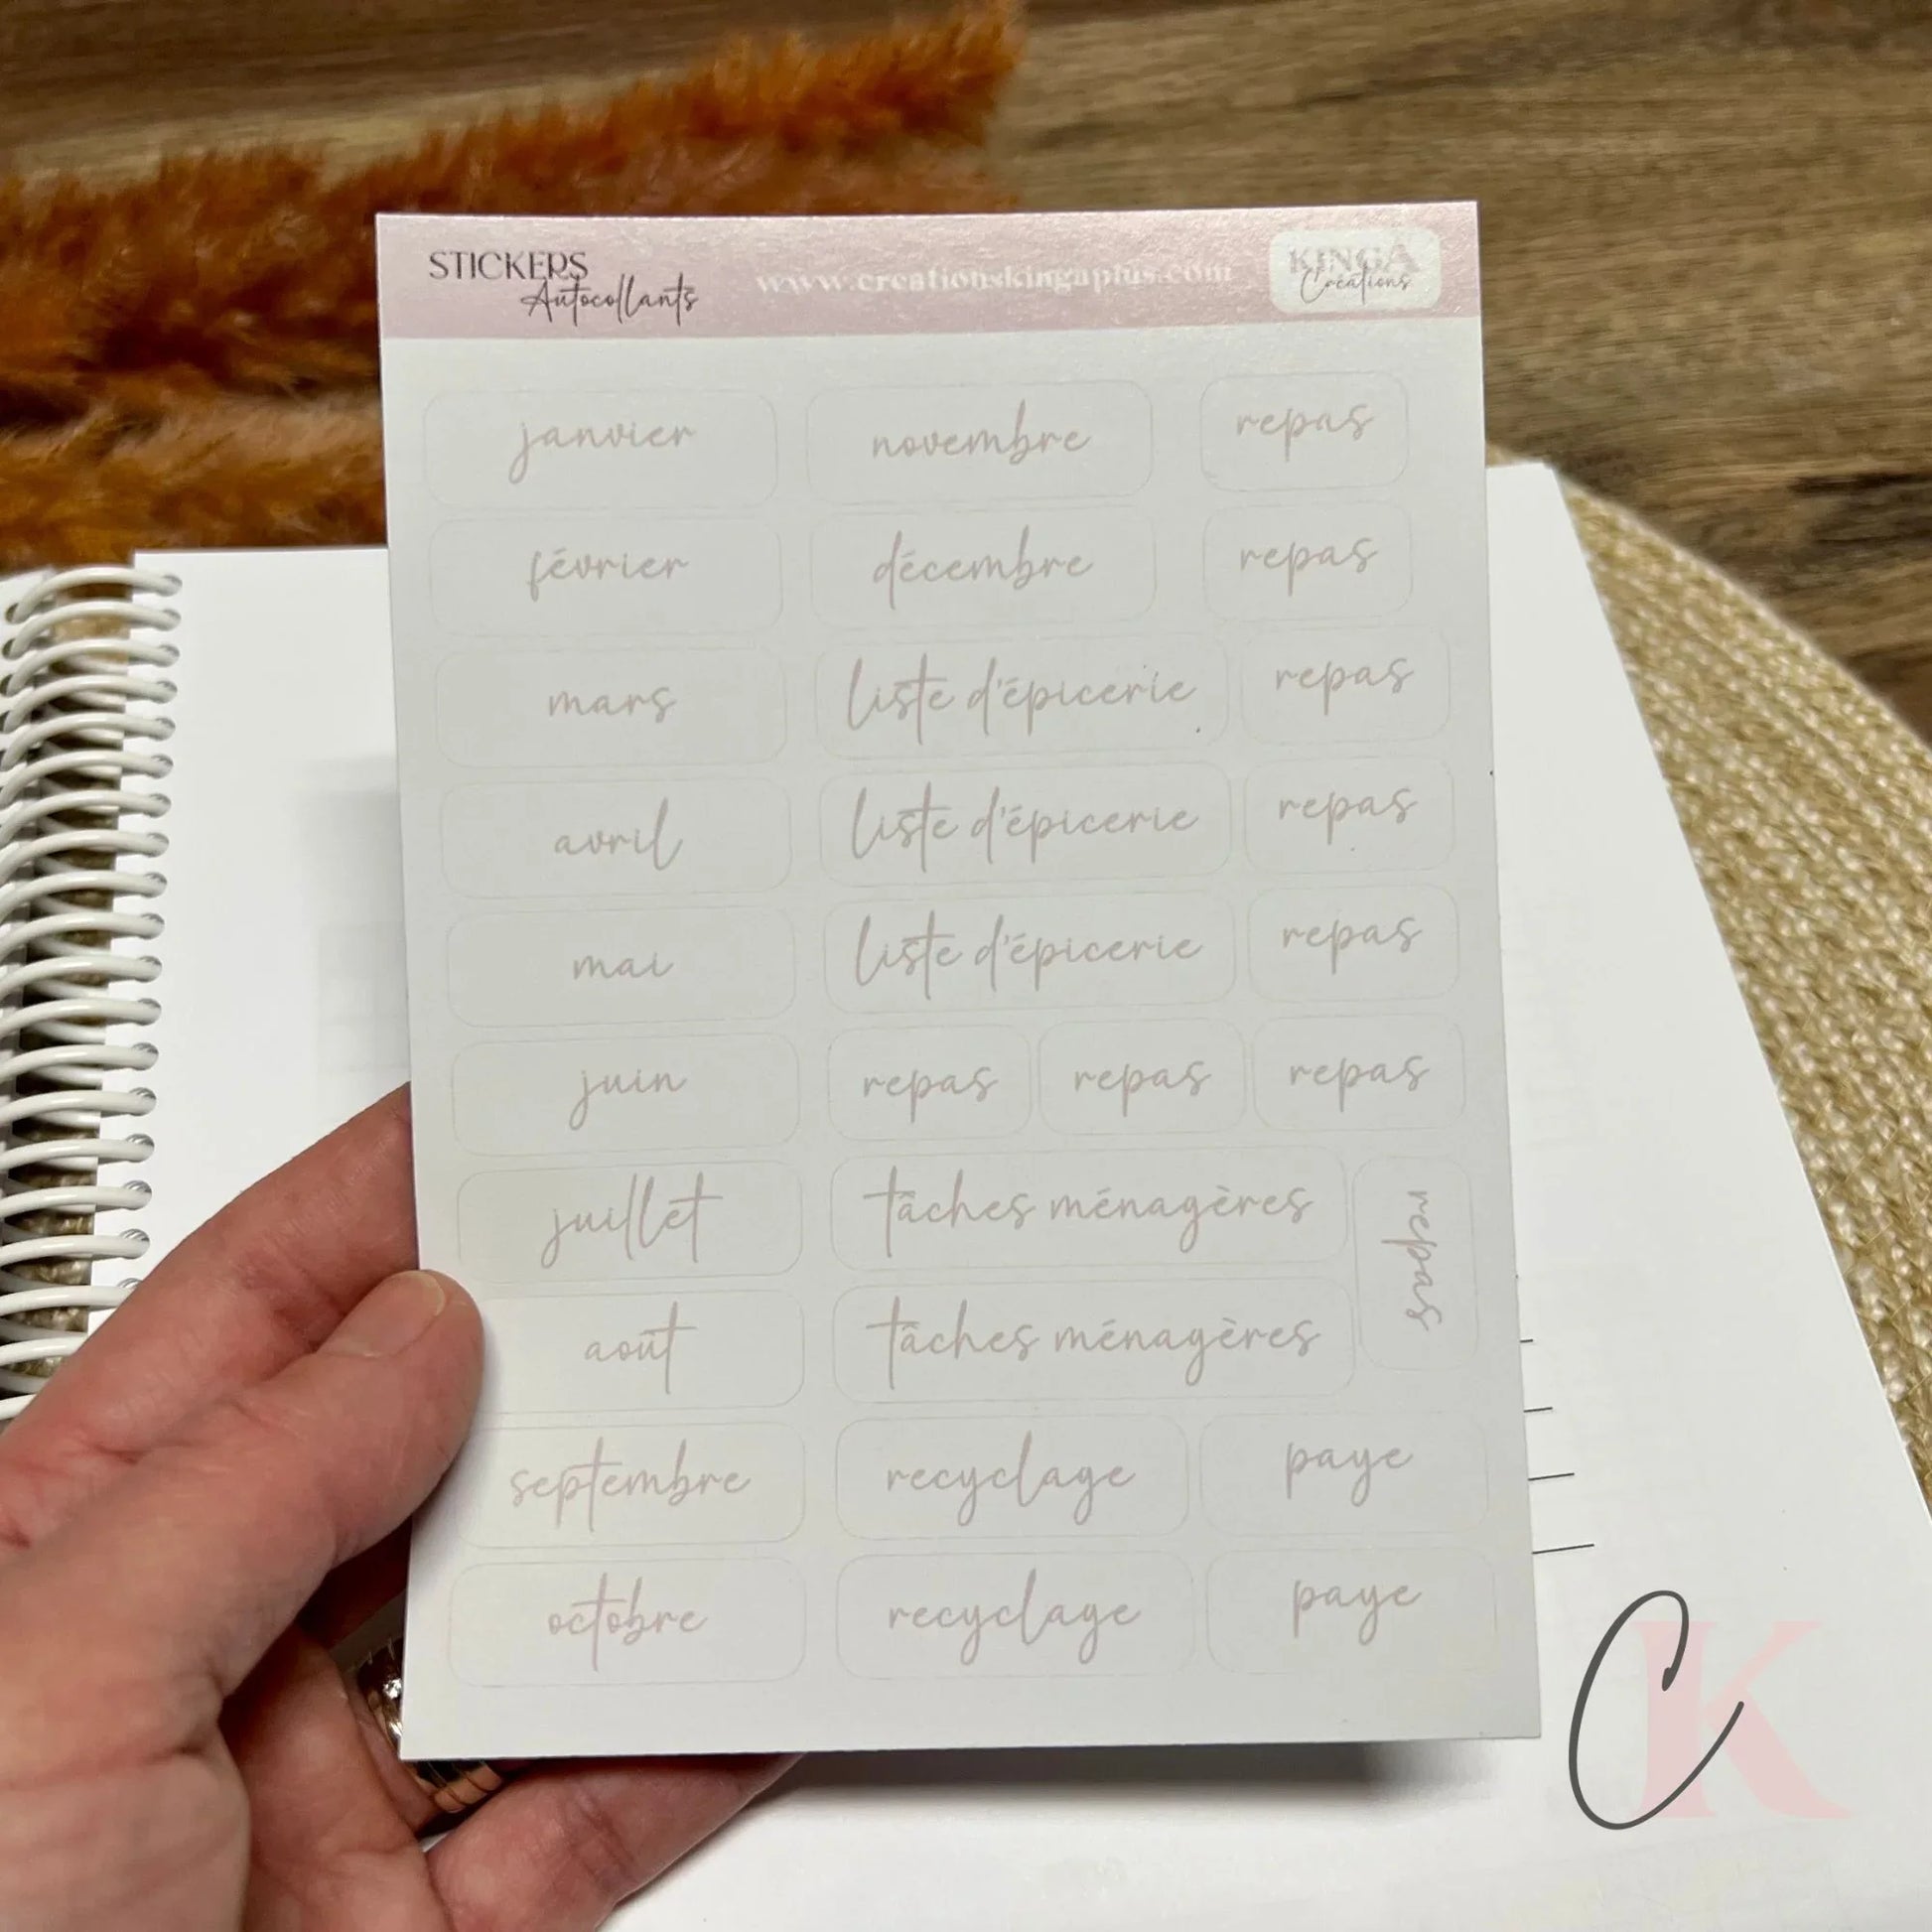 STICKERS
Autocollants
www.creationskingaplus.com
KINGA
Créations
janvier novembre repas
février décembre repas
mars liste d'épicerie repas
avril liste d'épicerie repas
mai liste d'épicerie repas
juin repas repas repas
juillet tâches ménagères repas
août tâches ménagères
septembre recyclage paye
octobre recyclage paye
CK